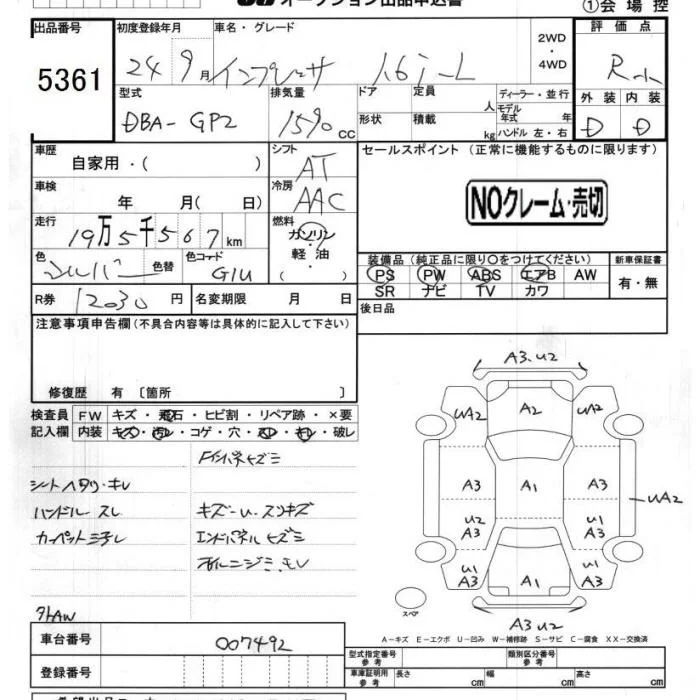 オークション出品申込書
①会場控
出品番号 初度登録年月 車名・グレード 評価点
5361 24 9月 インプレッサ 1.6i-L 2WD・4WD R
型式 排気量 ドア 定員 人 ディーラー・並行 外装 内装
DBA-GP2 1590 cc 形状 積載 kg モデル年式 年 ハンドル 左・右 D D
車歴 シフト セールスポイント (正常に機能するものに限ります)
自家用・( ) AT
車検 冷房
年 月( 日) AAC NOクレーム・売切
走行 燃料
19万5千567km ガソリン・軽油・( )
色 色替 色コード 装備品(純正品に限り〇をつけてください) 新車保証書
シルバー G1U PS PW ABS エアB AW 有・無
SR ナビ TV カワ
R券 12030円 名変期限 月 日 後日品
注意事項申告欄(不具合内容等は具体的に記入して下さい)
修復歴 有 〔箇所 〕
検査員 FW キズ・飛石・ヒビ割・リペア跡・×要
記入欄 内装 キズ・汚レ・コゲ・穴・スレ・キレ・破レ
シートヘタリ・キレ
ハンドルスレ キズ-U・スリキズ
エンドパネルキズミ
外AW
A3.U2
UA2 A2 UA2
A3 A1 A3 UA2
U2 A3 U1 A3
U2 A3 A1 U1 A3
スペア
A3 U2
A-キズ E-エクボ U-凹み W-補修跡 S-サビ C-腐食 XX-交換済
車台番号 007492
型式指定番号 参考 類別区分番号 参考
登録番号 車庫証明用 参考 長さ cm 幅 cm 高さ cm